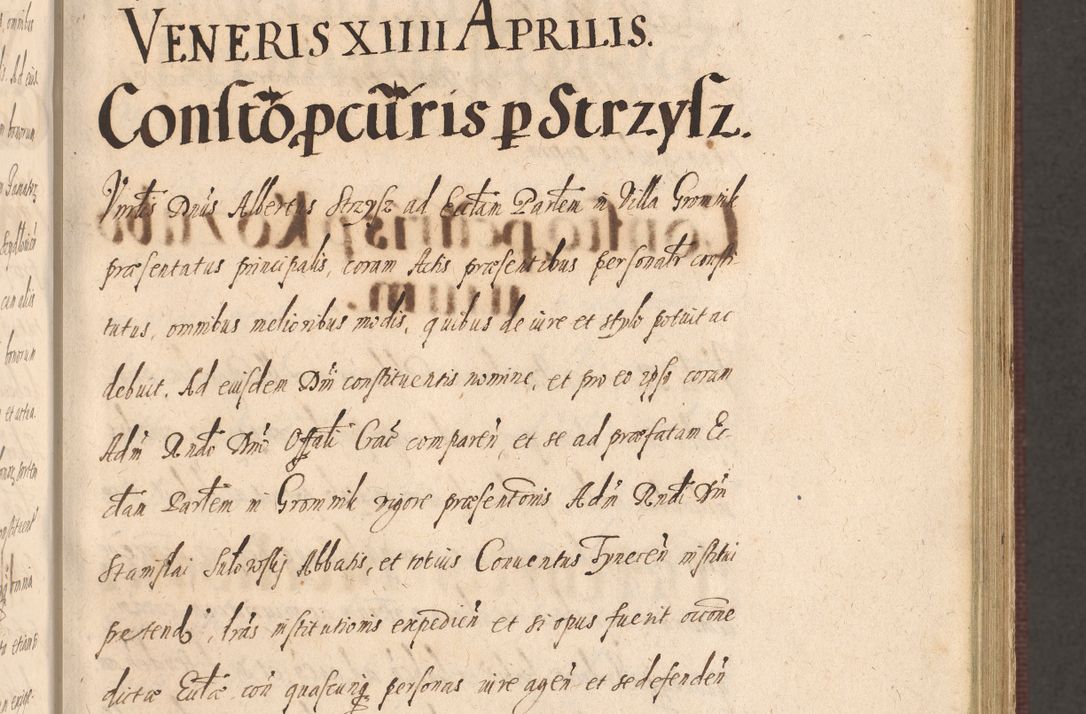 VENERIS XIIII APRILIS.
Constõ pcũris p Strzysz.
Dnûs Albertus Strzysz ad Ecctam Partem in Villa Gromnik
præsentatus principalis, coram Actis præsentibus personalr consti
tutus, omnibus melioribus modis, quibus de iure et stylo potuit ac
debuit. Ad eiusdem Dñi constituentis nomine, et pro eo ipso coram
Adm̃ Rndo Dno Offali Crac comparen̄, et se ad præfatam Ec
ctam Partem in Gromnik vigore præsentonis Adm̃ Rndi Dni
Stanislai Sulowskÿ Abbatis, et totius Conventus Tynecen̄ institui
petend, lras institutionis expedien̄ et si opus fuerit occõne
dictæ Ectæ con quascunq personas iure agen̄ et se defenden̄